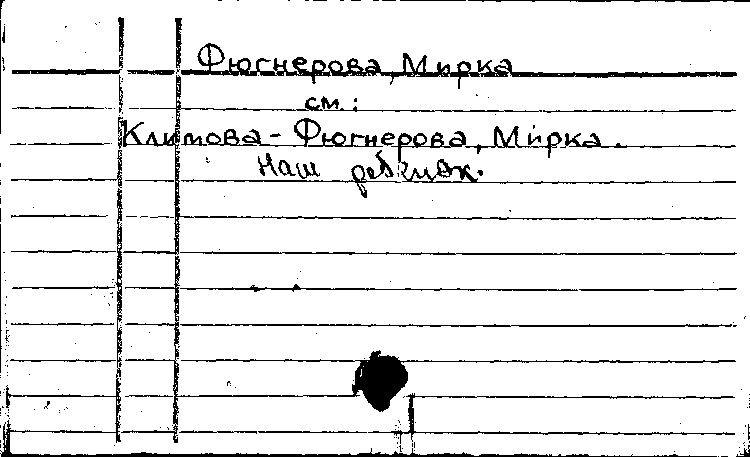 Фюгнерова, Мирка
см.:
Климова - Фюгнерова, Мирка.
Наш ребёнок.